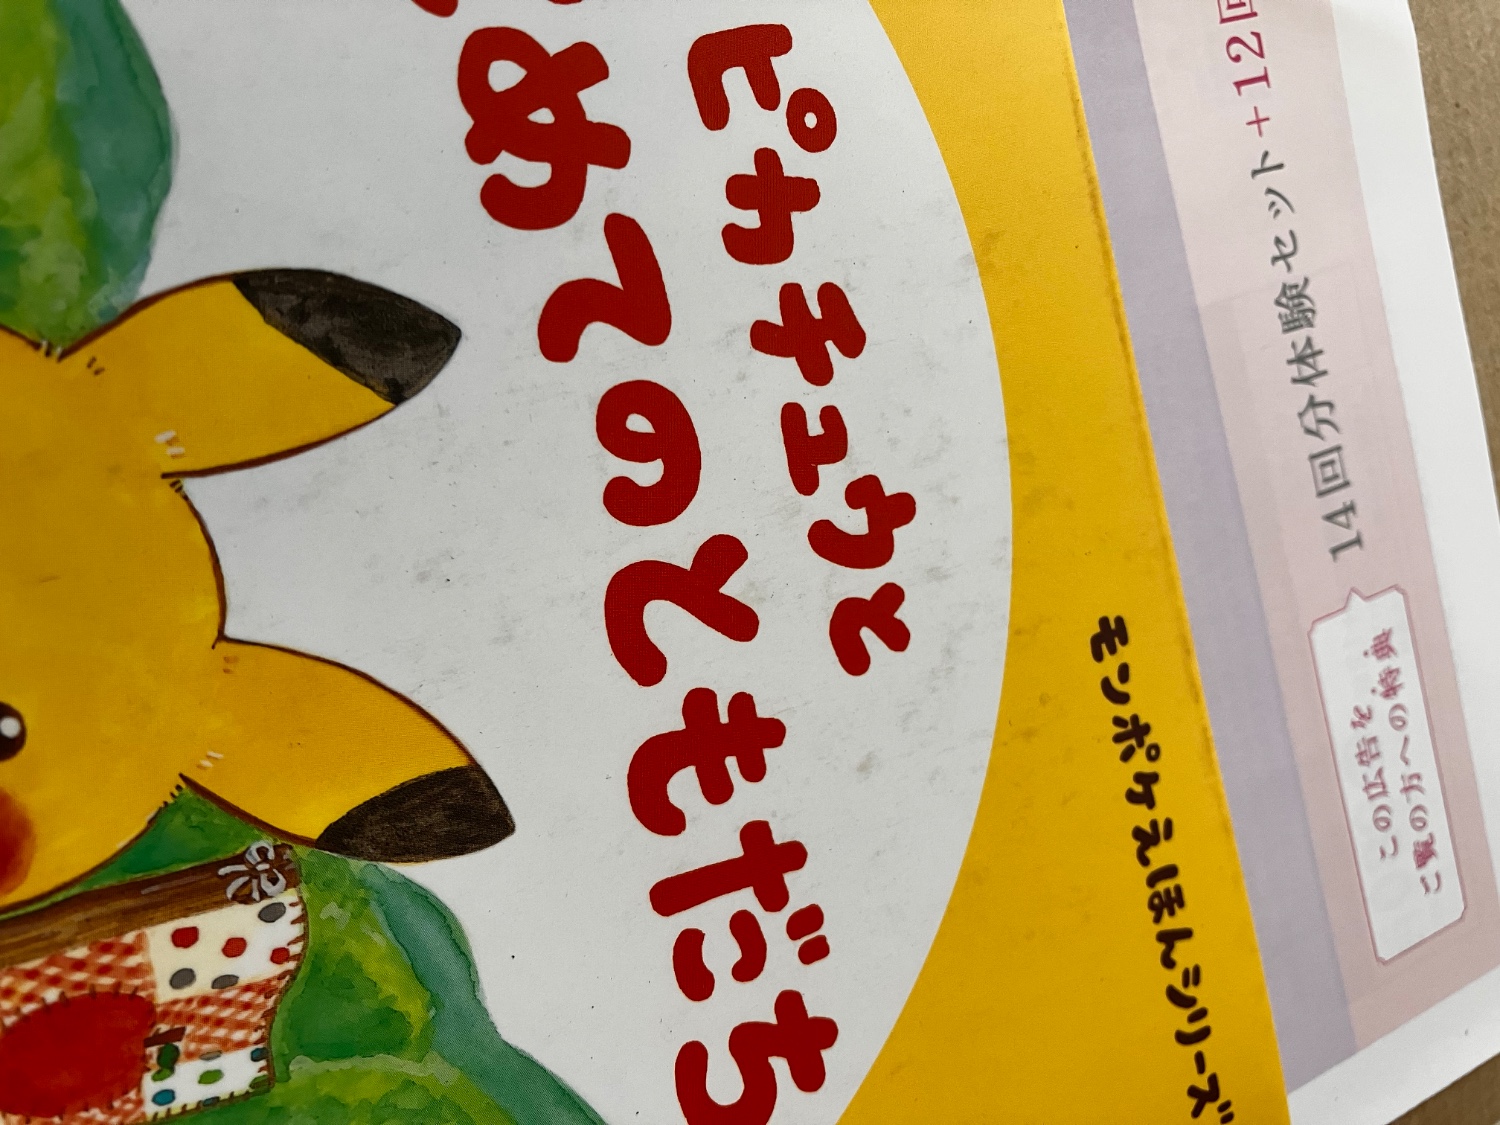 モンポケえほんシリーズ
ピカチュウと
めてのともだち
14回分体験セット+12回
この広告を
ご覧の方への特典